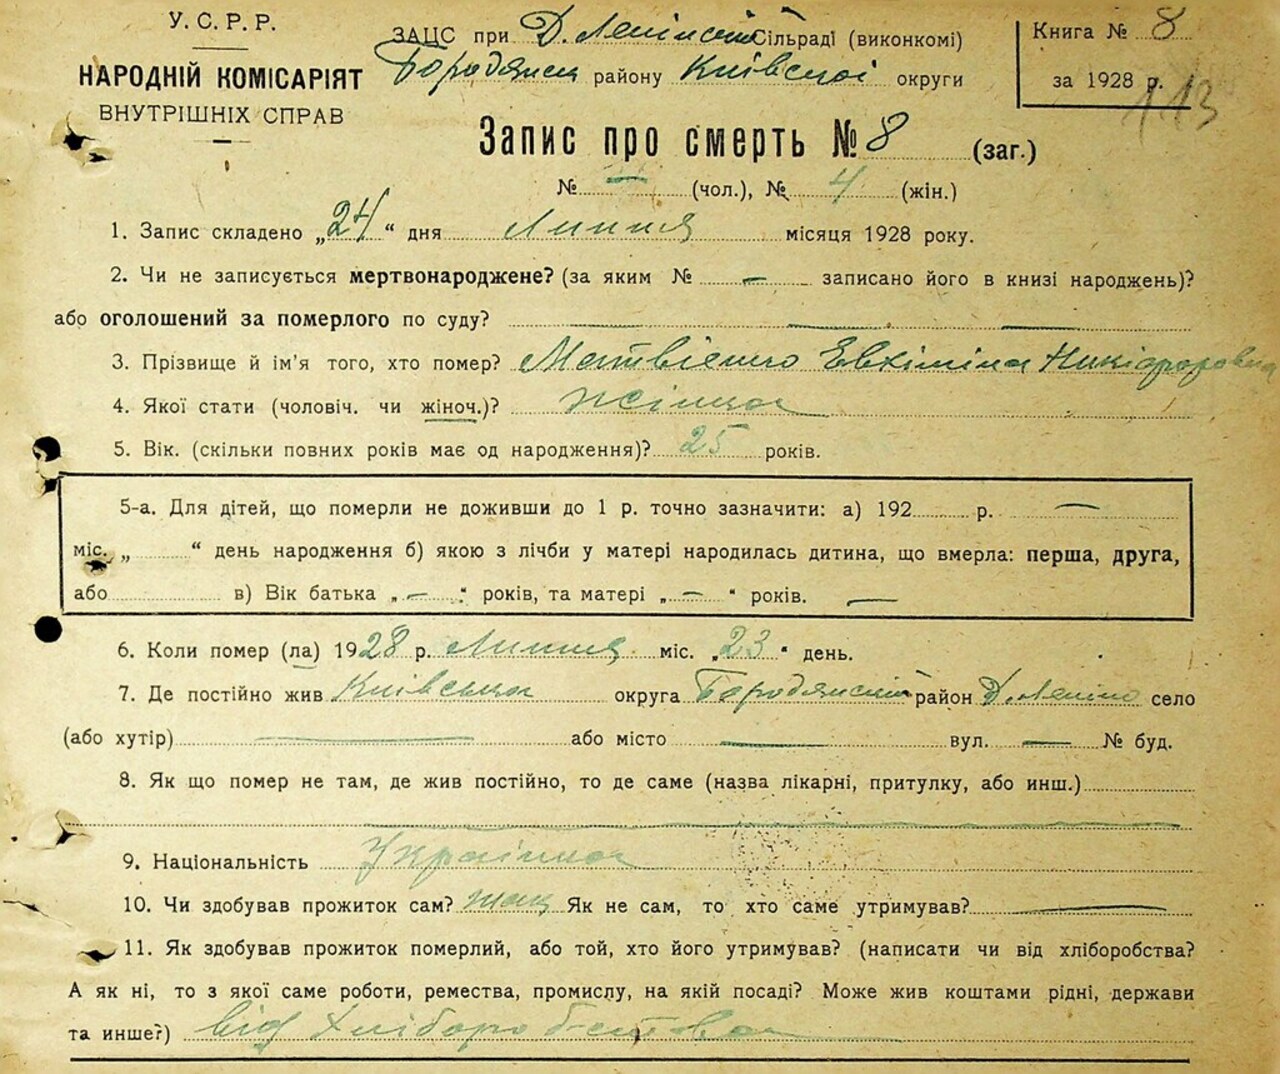 У.С.Р.Р.
НАРОДНІЙ КОМІСАРІЯТ
ВНУТРІШНІХ СПРАВ
ЗАЦС при Д. Ленінській Сільраді (виконкомі)
Бородянськ району Київської округи
Книга № 8
за 1928 р.
113
Запис про смерть № 8 (заг.)
№ — (чол.), № 4 (жін.)
1. Запис складено „24“ дня Липня місяця 1928 року.
2. Чи не записується мертвонароджене? (за яким № — записано його в книзі народжень)?
або оголошений за померлого по суду? — — —
3. Прізвище й ім'я того, хто помер? Матвієнко Евхіміна Никіфоровна
4. Якої стати (чоловіч. чи жіноч.)? жінка
5. Вік. (скільки повних років має од народження)? 25 років.
5-а. Для дітей, що померли не доживши до 1 р. точно зазначити: а) 192 р. —
міс. „ “ день народження б) якою з лічби у матері народилась дитина, що вмерла: перша, друга,
або в) Вік батька „—“ років, та матері „—“ років. —
6. Коли помер (ла) 1928 р. Липня міс. „23“ день.
7. Де постійно жив Київська округа Бородянский район Д. Леніно село
(або хутір) — або місто — вул. — № буд.
8. Як що помер не там, де жив постійно, то де саме (назва лікарні, притулку, або инш.)
—
9. Національність Українка
10. Чи здобував прожиток сам? Як не сам, то хто саме утримував? —
11. Як здобував прожиток померлий, або той, хто його утримував? (написати чи від хліборобства?
А як ні, то з якої саме роботи, ремества, промислу, на якій посаді? Може жив коштами рідні, держави
та инше?) від хліборобства